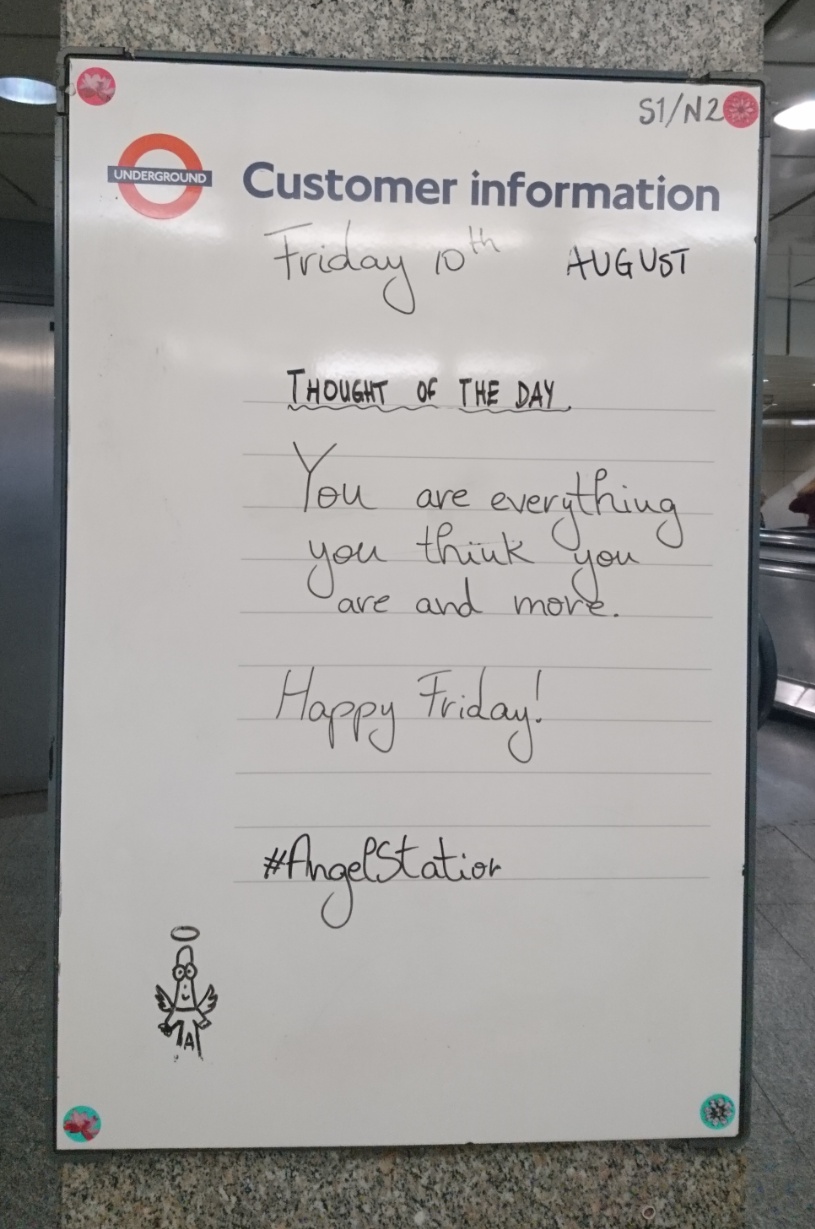 S1/N2
UNDERGROUND
Customer information
Friday 10th AUGUST
THOUGHT OF THE DAY
You are everything
you think you
are and more.
Happy Friday!
#AngelStation
A